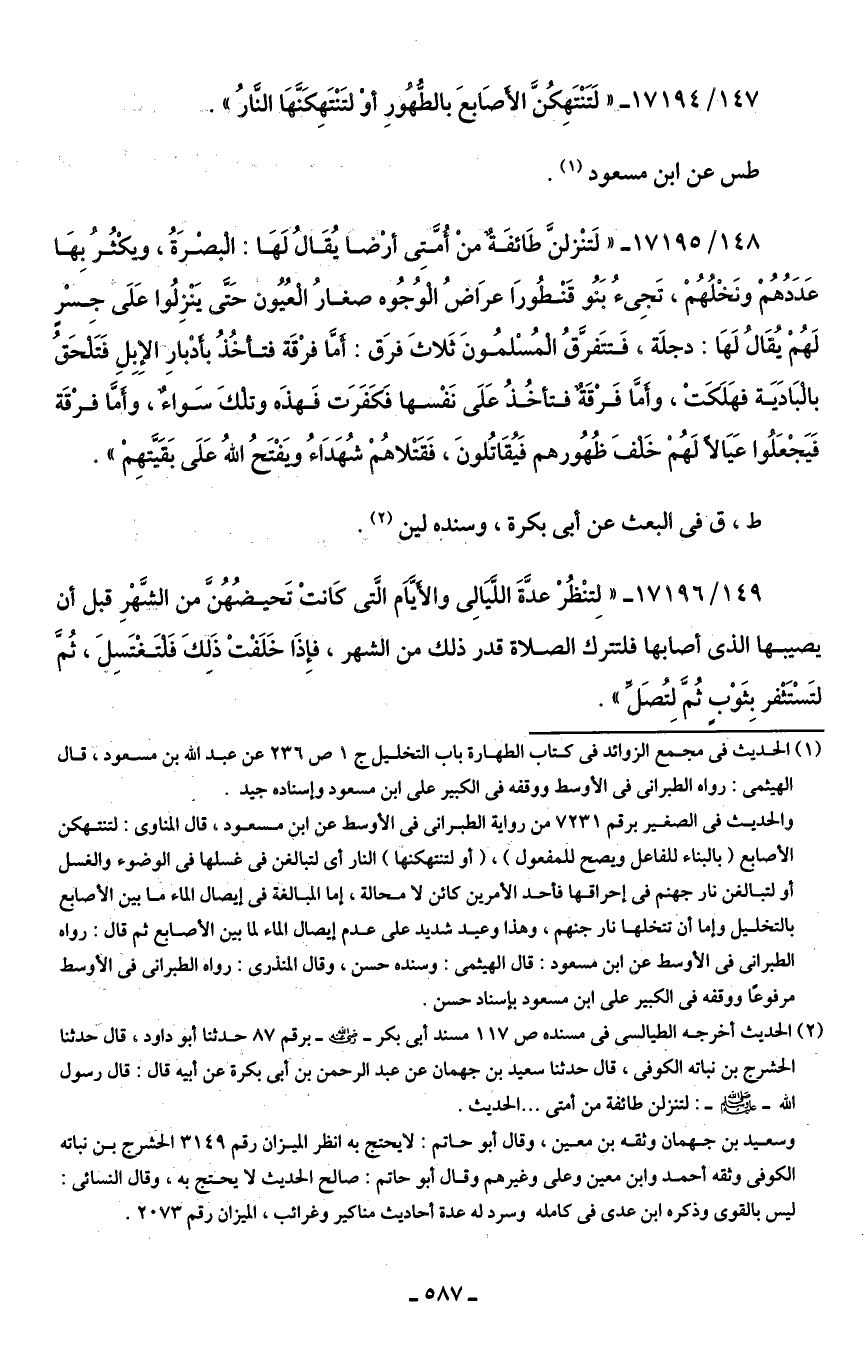 ١٤٧/ ١٧١٩٤ـ « لَتَنْتَهِكُنَّ الأَصَابعَ بالطُّهُورِ أوْ لتَنْتَهكَنَّهَا النَّارُ » .
طس عن ابن مسعود (١) .
١٤٨/ ١٧١٩٥ـ « لَتَنْزلنَّ طَائفَةٌ منْ أُمَّتِى أرْضًا يُقَالُ لَهَا : الْبصْرَةُ ، ويكْثُرُ بهَا
عَدَدُهُمْ ونَخْلُهُمْ ، تَجىءُ بَنُو قَنْطُورَا عرَاضُ الْوُجُوه صغارُ الْعيُون حَتَّى يَنْزِلُوا عَلَى جسْرٍ
لَهُمْ يُقَالُ لَهَا : دجلَة ، فَتَتَفرَّقُ الْمُسْلمُونَ ثَلاثَ فرَق : أمَّا فرْقَة فتأخُذُ بأَدْبارِ الإبلِ فَتَلْحَقُ
بالْبَاديَة فهَلَكَتْ ، وأمَّا فَرْقَةٌ فتأخُذُ عَلَى نَفْسها فَكَفَرَت فهذه وتلْكَ سَواءٌ ، وأمَّا فرْقَة
فَيَجْعَلُوا عيَالاً لَهُمْ خَلْفَ ظُهُورهم فَيُقَاتلُونَ ، فَقَتْلاهُمْ شُهَدَاءُ ويَفْتَحُ اللهُ عَلَى بَقَيَّتهمْ » .
ط ، ق فى البعث عن أبى بكرة ، وسنده لين (٢) .
١٤٩/ ١٧١٩٦ـ « لِتنْظُرْ عدَّةَ اللَّيَالِى والأيَّام الَّتى كَانتْ تَحيضُهُنَّ من الشَّهْرِ قبل أن
يصيبها الذى أصابها فلتترك الصلاة قدر ذلك من الشهر ، فإذَا خَلَفَتْ ذَلكَ فَلْتَغْتَسلَ ، ثُمَّ
لتَسْتَثْفر بِثَوْبٍ ثُمَّ لِتُصَلِّ » .
(١) الحديث فى مجمع الزوائد فى كتاب الطهارة باب التخليل ج ١ ص ٢٣٦ عن عبد الله بن مسعود ، قال
الهيثمى : رواه الطبرانى فى الأوسط ووقفه فى الكبير على ابن مسعود وإسناده جيد .
والحديث فى الصغير برقم ٧٢٣١ من رواية الطبرانى فى الأوسط عن ابن مسعود ، قال المناوى : لتنتهكن
الأصابع ( بالبناء للفاعل ويصح للمفعول ) ، ( أو لتنتهكنها ) النار أى لتبالغن فى غسلها فى الوضوء والغسل
أو لتبالغن نار جهنم فى إحراقها فأحد الأمرين كائن لا محالة ، إما المبالغة فى إيصال الماء ما بين الأصابع
بالتخليل وإما أن تتخلها نار جنهم ، وهذا وعيد شديد على عدم إيصال الماء لما بين الأصابع ثم قال : رواه
الطبرانى فى الأوسط عن ابن مسعود : قال الهيثمى : وسنده حسن ، وقال المنذرى : رواه الطبرانى فى الأوسط
مرفوعًا ووقفه فى الكبير على ابن مسعود بإسناد حسن .
(٢) الحديث أخرجه الطيالسى فى مسنده ص ١١٧ مسند أبى بكر ـ رضي الله عنه ـ برقم ٨٧ حدثنا أبو داود ، قال حدثنا
الحشرج بن نباته الكوفى ، قال حدثنا سعيد بن جهمان عن عبد الرحمن بن أبى بكرة عن أبيه قال : قال رسول
الله ـ صلى الله عليه وسلم ـ : لتنزلن طائفة من أمتى ...الحديث .
وسعيد بن جهمان وثقه بن معين ، وقال أبو حاتم : لايحتج به انظر الميزان رقم ٣١٤٩ الحشرج بن نباته
الكوفى وثقه أحمد وابن معين وعلى وغيرهم وقال أبو حاتم : صالح الحديث لا يحتج به ، وقال النسائى :
ليس بالقوى وذكره ابن عدى فى كامله وسرد له عدة أحاديث مناكير وغرائب ، الميزان رقم ٢٠٧٣ .
ـ ٥٨٧ ـ